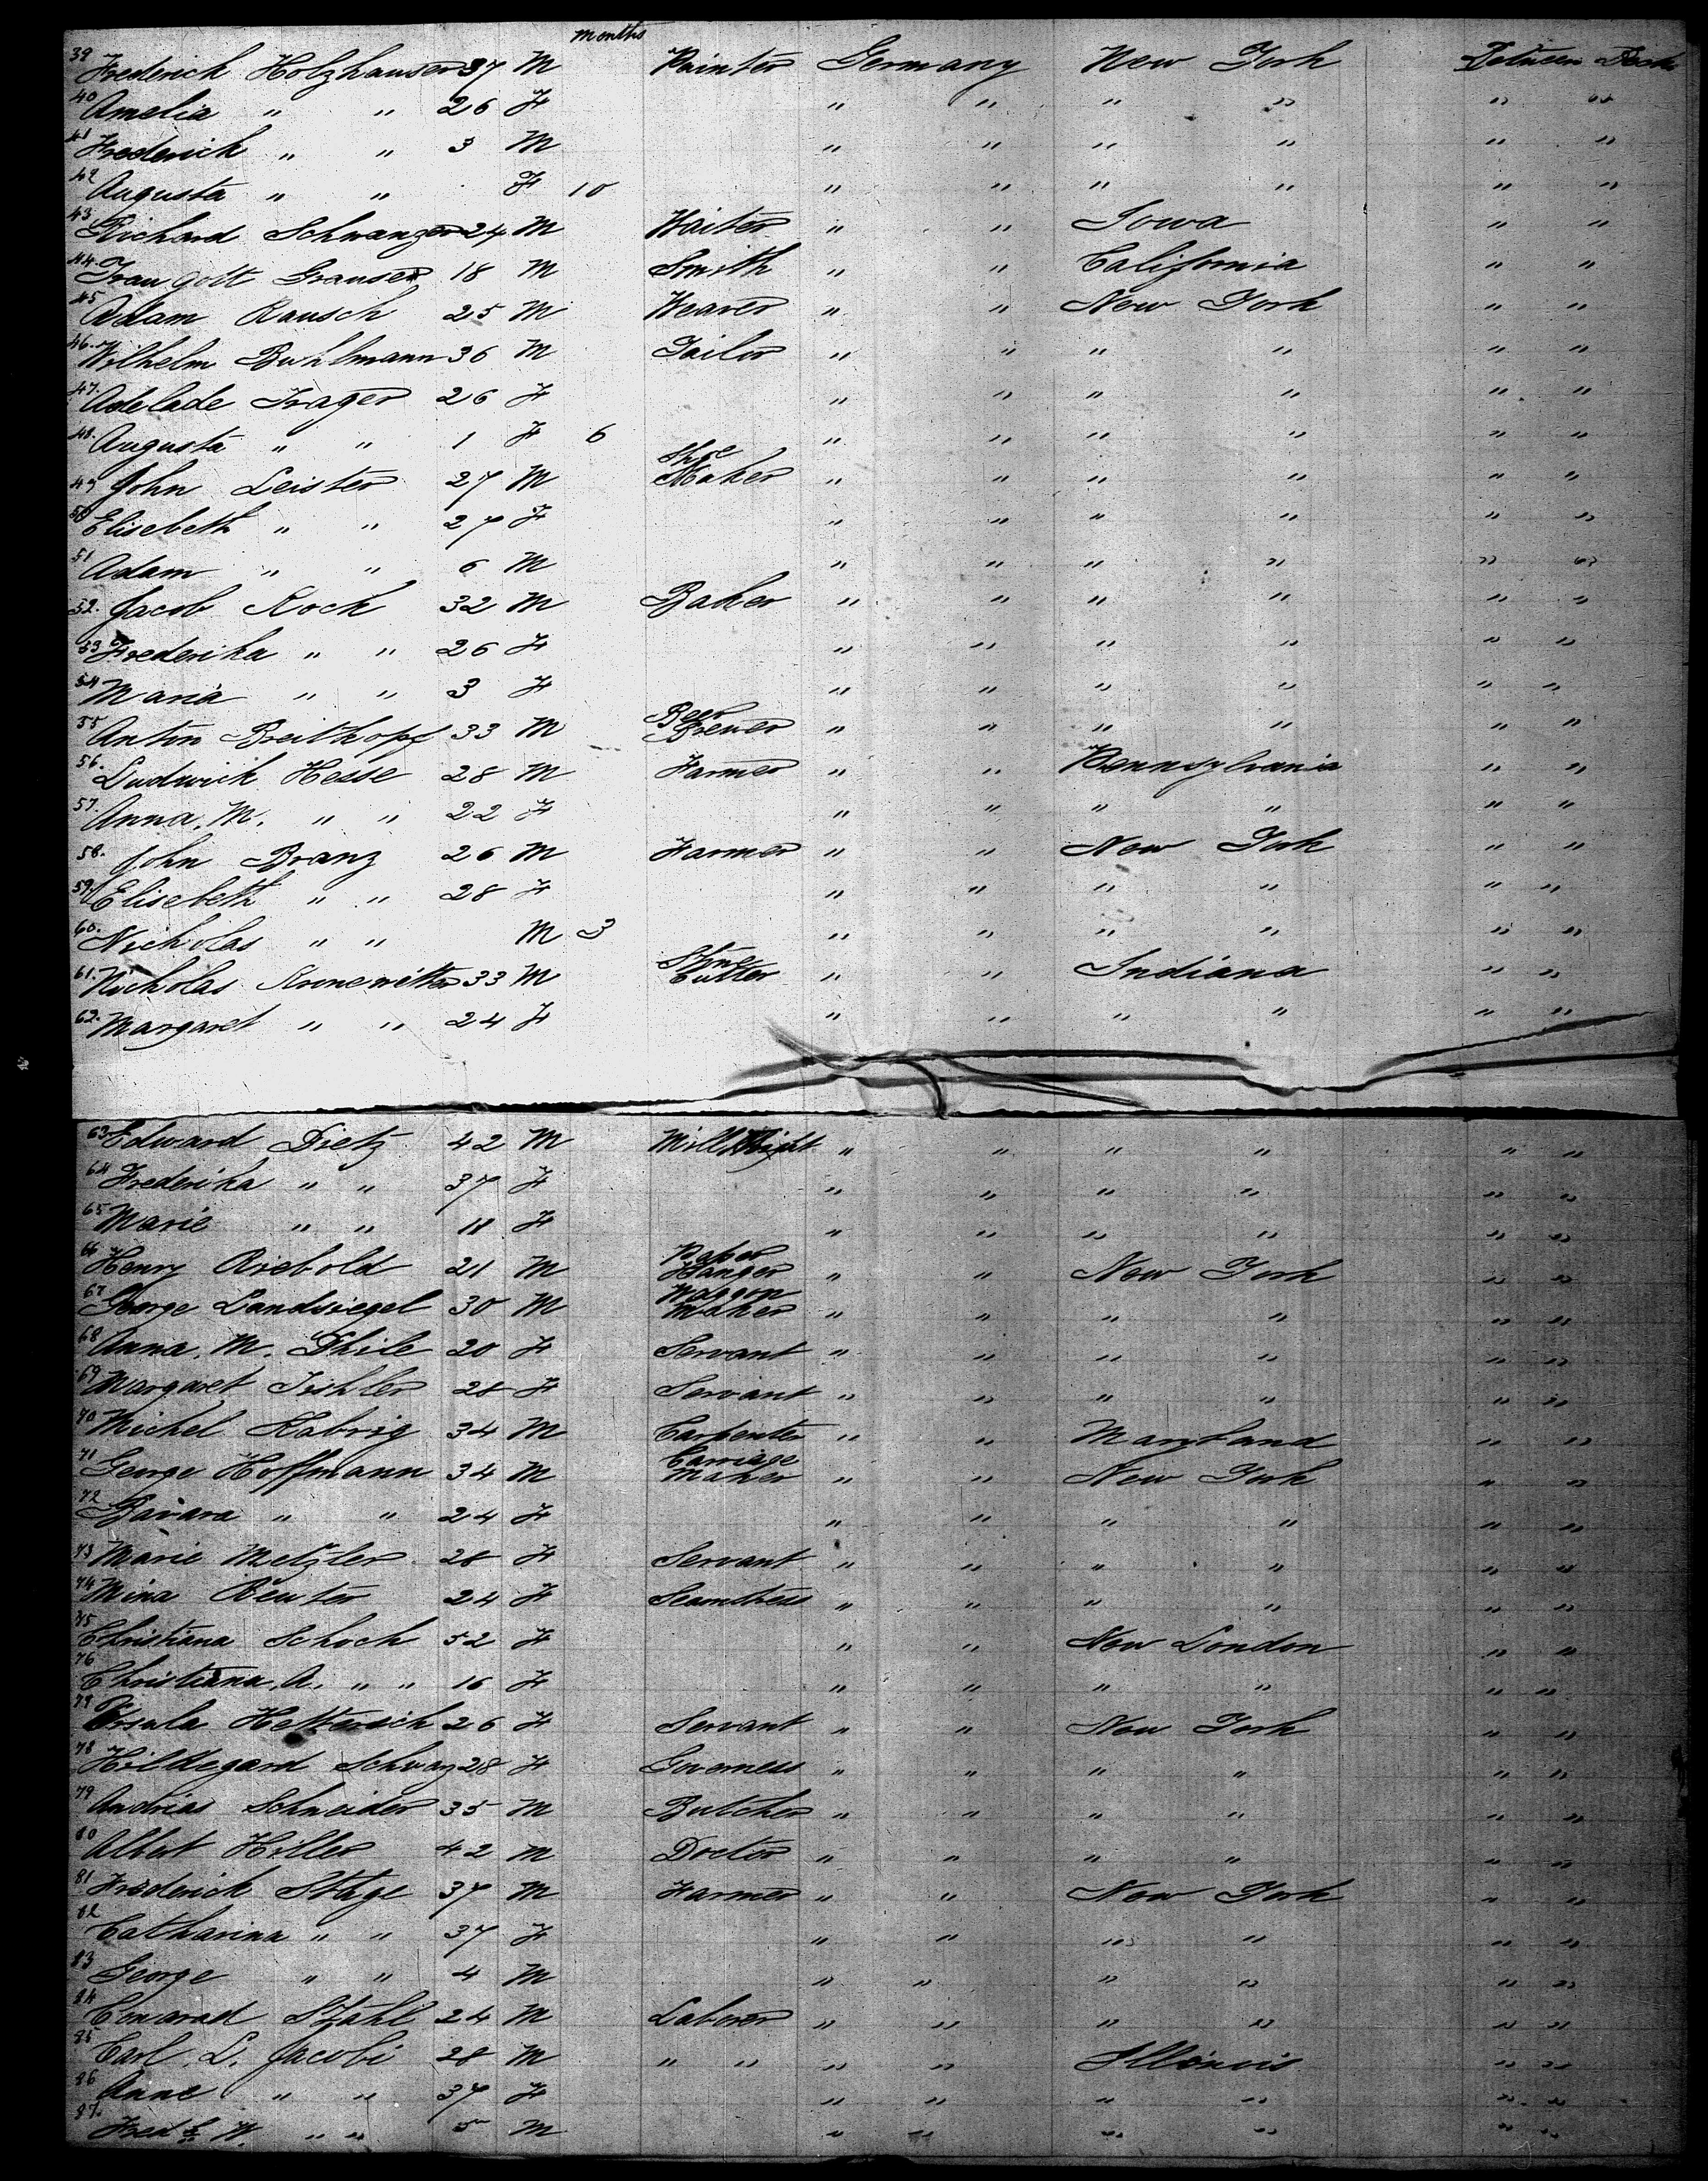 months
39 Frederich Holzhauser 37 M Painter Germany New York Between Deck
40 Amelia " " 26 F " " " " " "
41 Frederich " " 3 M " " " " " "
42 Augusta " " F 10 " " " " " "
43. Richard Schwanzer 24 M Waiter " " Iowa " "
44. Traugott Grauser 18 M Smith " " California " "
45 Adam Rausch 25 M Weaver " " New York " "
46. Wilhelm Buhlmann 36 M Tailor " " " " " "
47. Adelade Trager 26 F " " " " " "
48. Augusta " " 1 F 6 " " " " " "
49 John Leister 27 M Shoe Maker " " " " " "
50 Elisebeth " " 27 F " " " " " "
51 Adam " " 6 M " " " " " "
52. Jacob Koch 32 M Baker " " " " " "
53 Frederika " " 26 F " " " " " "
54 Maria " " 3 F " " " " " "
55 Anton Breitkopf 33 M Beer Brewer " " " " " "
56. Ludwick Hesse 28 M Farmer " " Pennsylvania " "
57. Anna. M. " " 22 F " " " " " "
58. John Branz 26 M Farmer " " New York " "
59. Elisebeth " " 28 F " " " " " "
60. Nicholas " " M 3 " " " " " "
61. Nicholas Kronewitter 33 M Stone Cutter " " Indiana " "
62. Margaret " " 24 F " " " " " "
63 Edward Dietz 42 M Mill Wright " " " " " "
64 Frederika " " 37 F " " " " " "
65 Marie " " 11 F " " " " " "
66 Henry Riebold 21 M Paper Hanger " " New York " "
67 George Landsiegel 30 M Waggon Maker " " " " " "
68 Anna. M. Thile 20 F Servant " " " " " "
69 Margaret Tishler 28 F Servant " " " " " "
70 Michel Habrig 34 M Carpenter " " Maryland " "
71 George Hoffmann 34 M Carriage Maker " " New York " "
72 Bavara " " 24 F " " " " " "
73 Marie Metzler 28 F Servant " " " " " "
74 Mina Reuter 24 F Seamthess " " " " " "
75 Christiana Schoch 52 F " " New London " "
76 Christiana. A. " " 16 F " " " " " "
77 Ursula Hetterich 26 F Servant " " New York " "
78 Hildegard Schwarz 28 F Governess " " " " " "
79 Andrias Schneider 35 M Butcher " " " " " "
80 Albert Hiller 42 M Doctor " " " " " "
81 Frederick Stage 37 M Farmer " " New York " "
82 Catharina " " 37 F " " " " " "
83 George " " 4 M " " " " " "
84 Conarad Stahl 24 M Laborer " " " " " "
85 Carl. L. Jacobi 28 M " " " " Illinois " "
86 Anne " " 37 F " " " " " "
87. Fred k W. " " 5 M " " " " " "